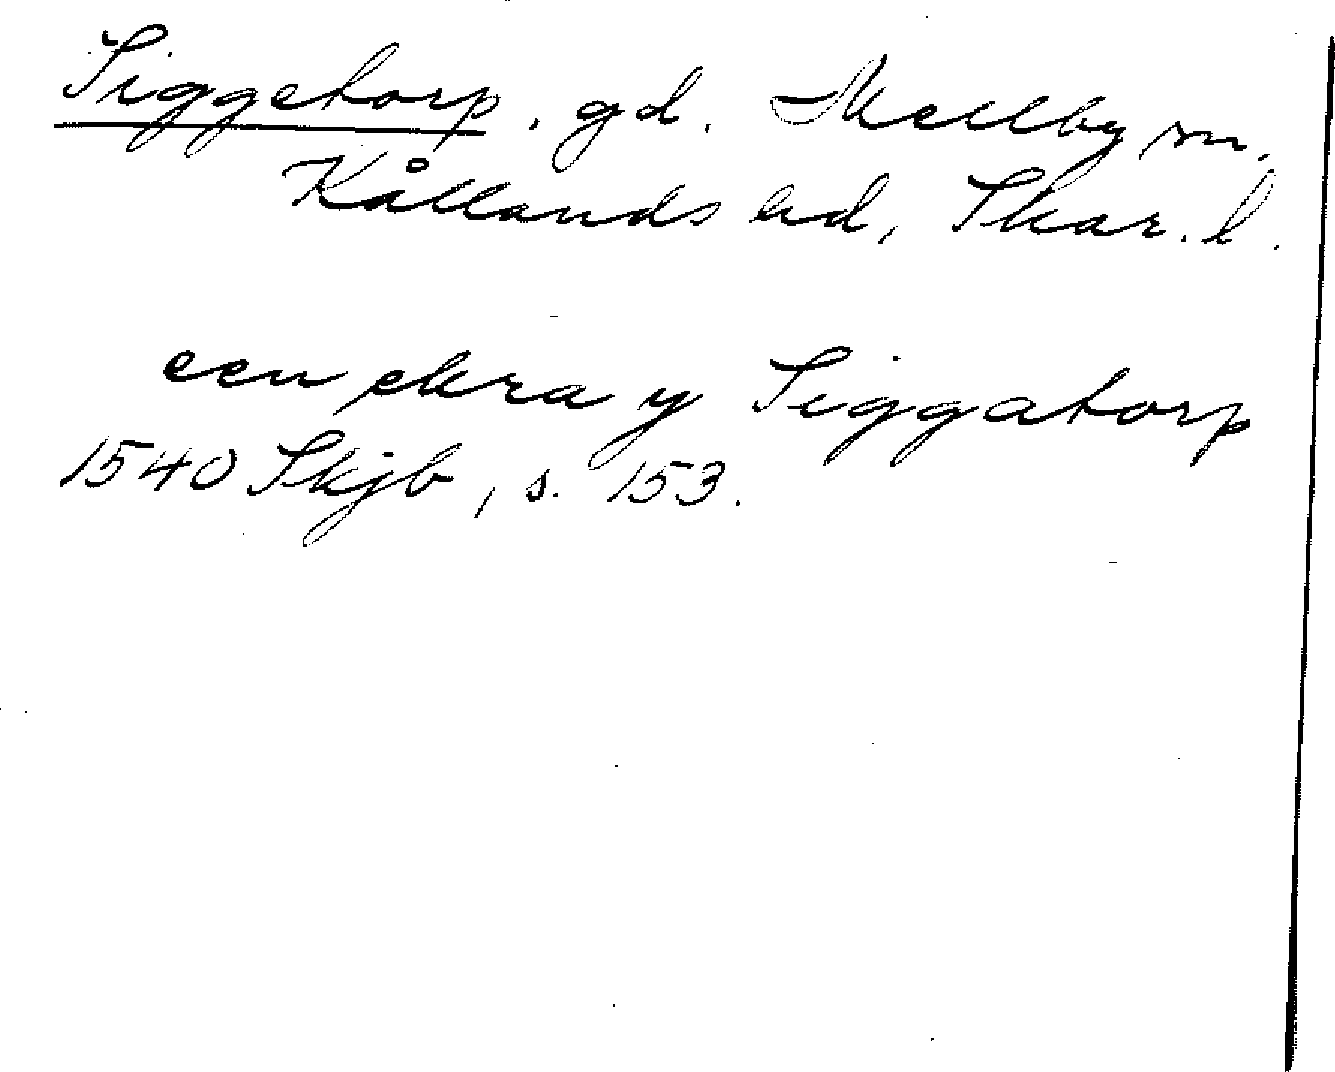 Siggetorp, gd. Mellby sn.
Kållands hd, Skar. l.
een ekra y Siggatorp
1540 Skjb, s. 153.